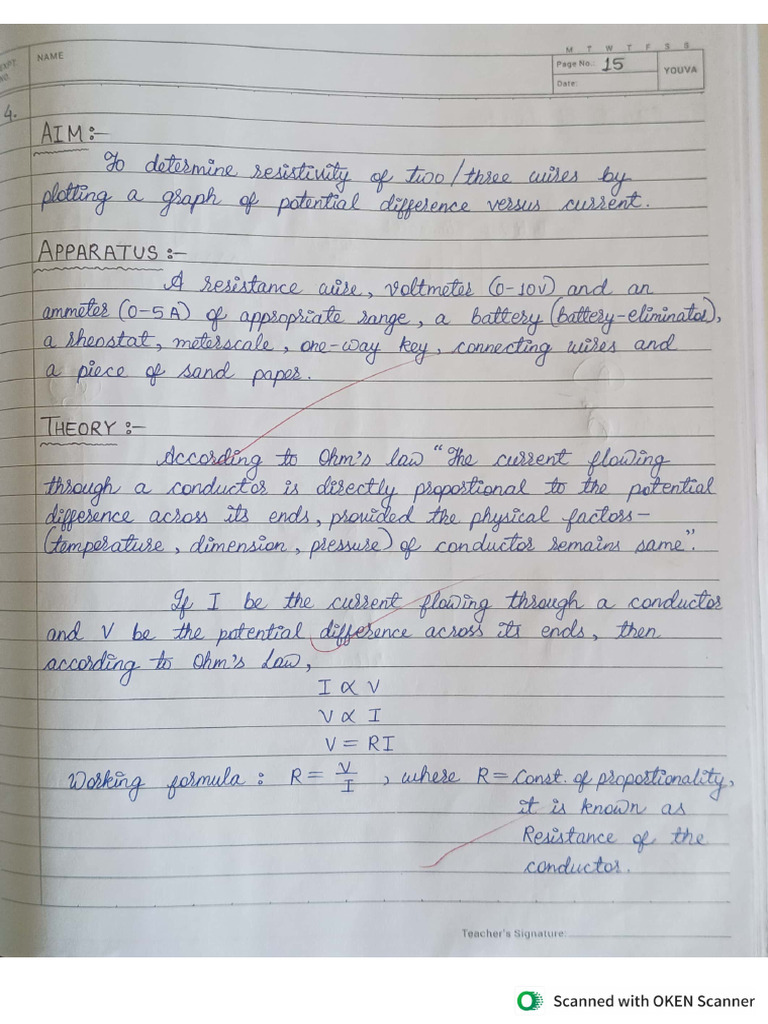 EXPT. NO.
NAME
M T W T F S S
Page No.: 15
YOUVA
Date:
4.
AIM :-
To determine resistivity of two/three wires by
plotting a graph of potential difference versus current.
APPARATUS :-
A resistance wire, voltmeter (0-10V) and an
ammeter (0-5A) of appropriate range, a battery (battery-eliminator),
a rheostat, meterscale, one-way key, connecting wires and
a piece of sand paper.
THEORY :-
According to Ohm's law "The current flowing
through a conductor is directly proportional to the potential
difference across its ends, provided the physical factors-
(temperature, dimension, pressure) of conductor remains same".
If I be the current flowing through a conductor
and V be the potential difference across its ends, then
according to Ohm's Law,
I ∝ V
V ∝ I
V = RI
Working formula : R = V/I, where R = Const. of proportionality,
it is known as
Resistance of the
conductor.
Teacher's Signature:
Scanned with OKEN Scanner